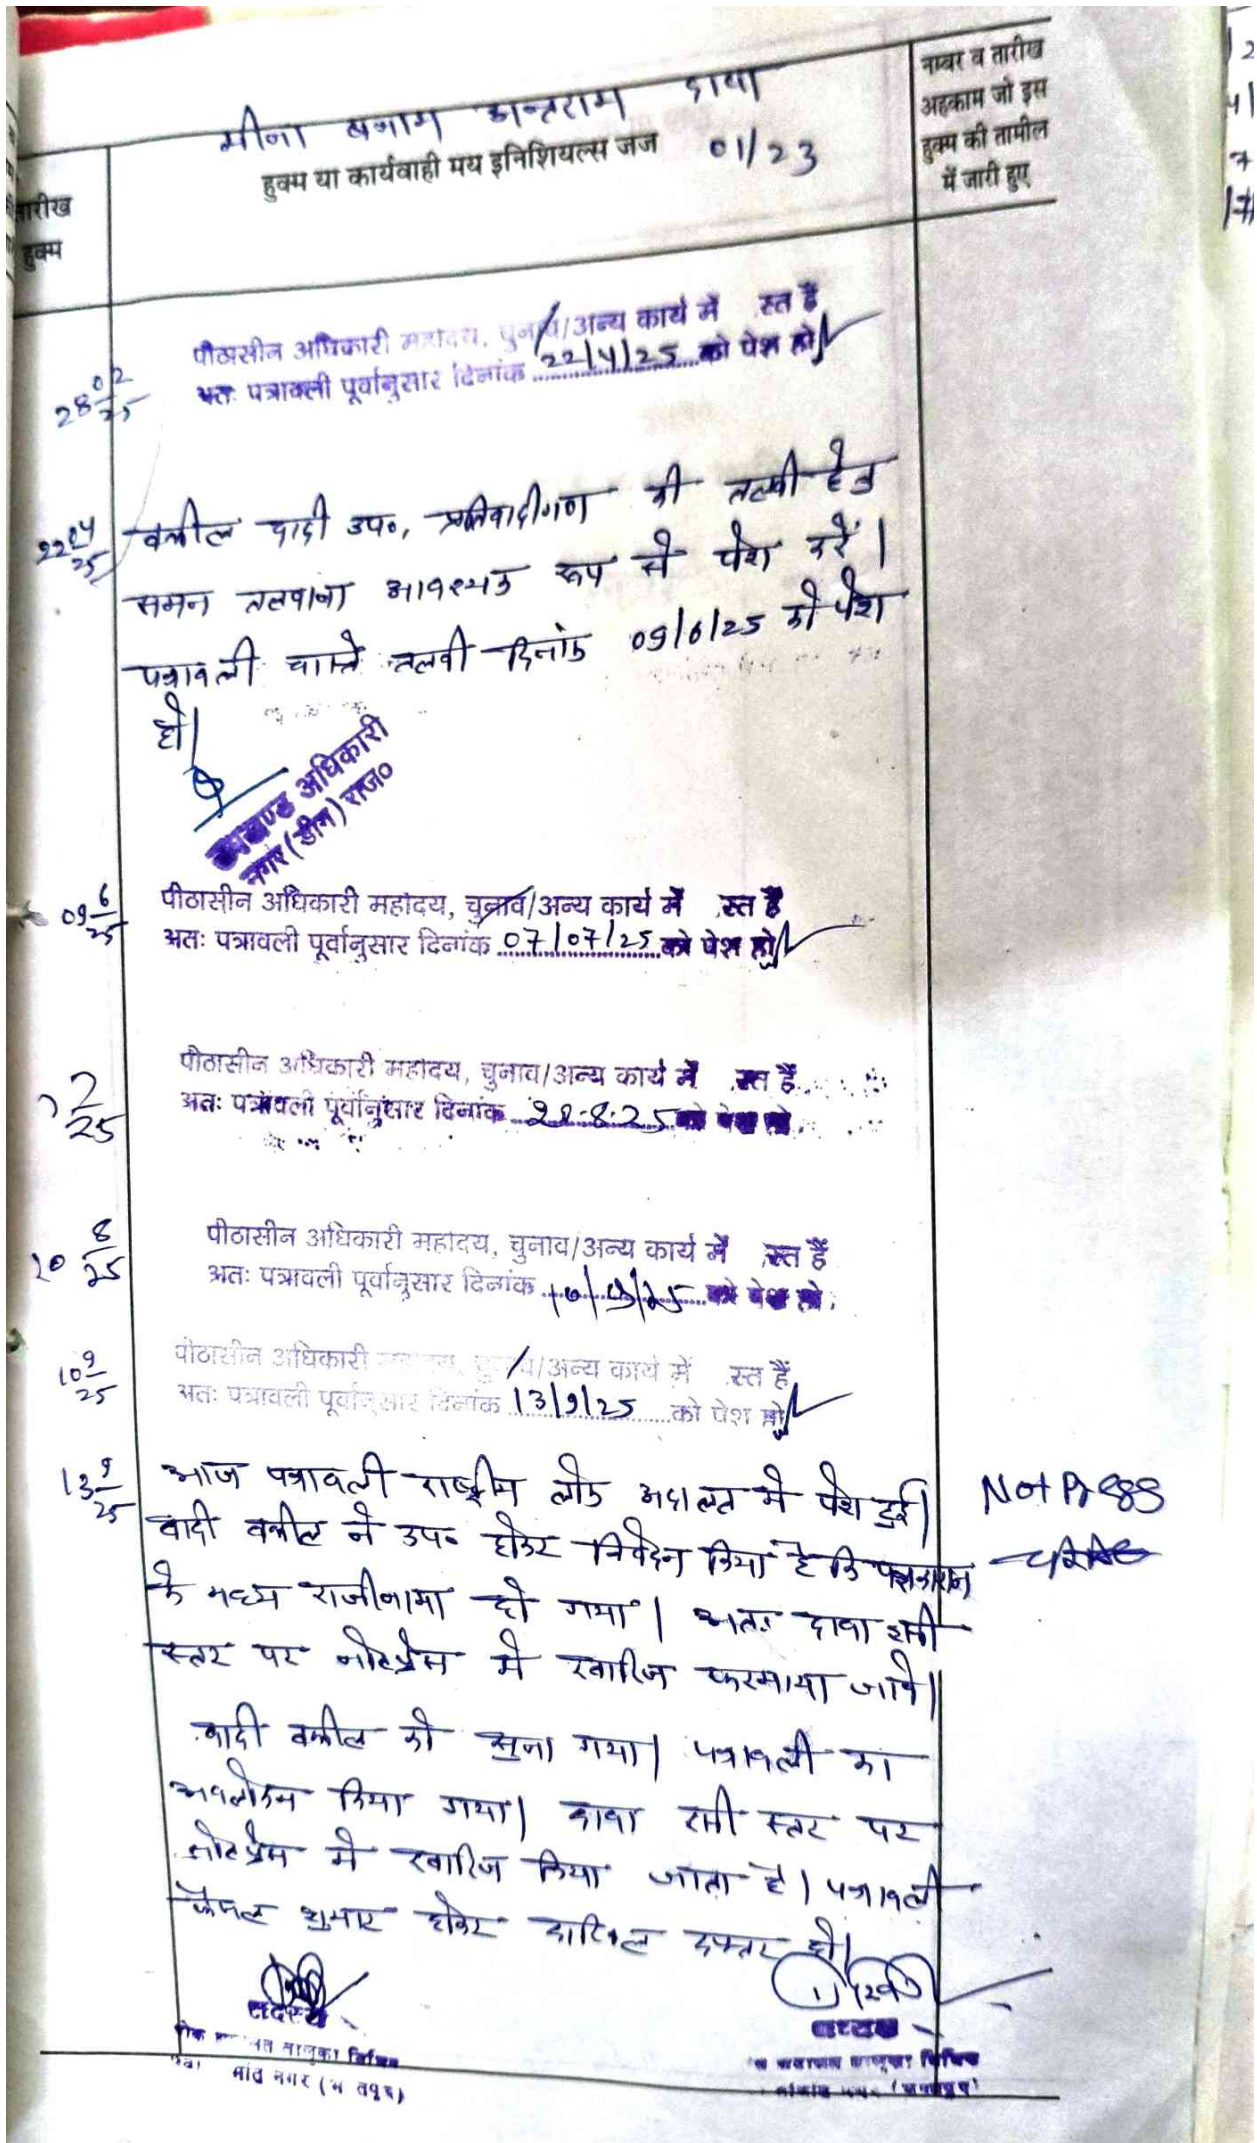 मीना बनाम दावा
हुक्म या कार्यवाही मय इनिशियल्स जज 01/23
तारीख
हुक्म
नम्बर व तारीख
अहकाम जो इस
हुक्म की तामील
में जारी हुए
28 02/25
पीठासीन अधिकारी महोदय, चुनाव/अन्य कार्य में स्त हैं
अतः पत्रावली पूर्वानुसार दिनांक 22/4/25 को पेश हो
22 04/25
वकील वादी उप०, प्रतिवादीगण की तलबी हेतु
समन तलवाना आवश्यक रूप से पेश करें।
पत्रावली वास्ते तलवी दिनांक 09/6/25 को पेश
हो।
उपखण्ड अधिकारी
नगर (डीग) राज०
09 6/25
पीठासीन अधिकारी महोदय, चुनाव/अन्य कार्य में स्त हैं
अतः पत्रावली पूर्वानुसार दिनांक 07/07/25 को पेश हो
7/25
पीठासीन अधिकारी महोदय, चुनाव/अन्य कार्य में स्त हैं
अतः पत्रावली पूर्वानुसार दिनांक को पेश हो
20 8/25
पीठासीन अधिकारी महोदय, चुनाव/अन्य कार्य में स्त हैं
अतः पत्रावली पूर्वानुसार दिनांक 10/9/25 को पेश हो
10 9/25
पीठासीन अधिकारी महोदय, चुनाव/अन्य कार्य में स्त हैं
अतः पत्रावली पूर्वानुसार दिनांक 13/9/25 को पेश हो
13 9/25
आज पत्रावली राष्ट्रीय लोक अदालत में पेश हुई।
Not Press
वादी वकील ने उप० होकर निवेदन किया है कि पक्षकारान
के मध्य राजीनामा हो गया। अतः दावा इसी
स्तर पर नोटप्रेस में खारिज फरमाया जावे।
वादी वकील को सुना गया। पत्रावली का
अवलोकन किया गया। दावा इसी स्तर पर
नोटप्रेस में खारिज किया जाता है। पत्रावली
फैसल शुमार होकर दाखिल दफ्तर हो।
सदस्य
अध्यक्ष
तालुका विधिक
तालुका विधिक
नगर